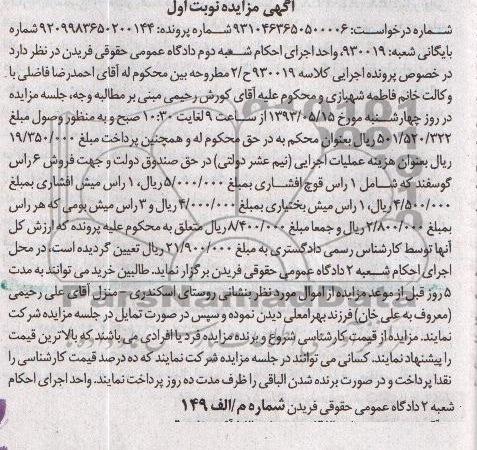 آگهی مزایده نوبت اول
شماره درخواست: ۹۳۱۰۴۶۳۶۵۰۵۰۰۰۰۶ شماره پرونده: ۹۲۰۹۹۸۳۶۵۰۲۰۰۱۴۴ شماره
بایگانی شعبه: ۹۳۰۰۱۹، واحد اجرای احکام شعبه دوم دادگاه عمومی حقوقی فریدن در نظر دارد
در خصوص پرونده اجرایی کلاسه ۹۳۰۰۱۹ ح/۲ مطروحه بین محکوم له آقای احمدرضا فاضلی با
وکالت خانم فاطمه شهبازی و محکوم علیه آقای کورش رحیمی مبنی بر مطالبه وجه، جلسه مزایده
در روز چهارشنبه مورخ ۱۳۹۳/۰۵/۱۵ از ساعت ۹ لغایت ۱۰:۳۰ صبح و به منظور وصول مبلغ
۵۰۱/۵۲۰/۳۲۲ ریال بعنوان محکم به در حق محکوم له و همچنین پرداخت مبلغ ۱۹/۳۵۰/۰۰۰
ریال بعنوان هزینه عملیات اجرایی (نیم عشر دولتی) در حق صندوق دولت و جهت فروش ۶ راس
گوسفند که شامل ۱ راس قوچ افشاری بمبلغ ۵/۰۰۰/۰۰۰ ریال، ۱ راس میش افشاری بمبلغ
۴/۵۰۰/۰۰۰ ریال، ۱ راس میش بختیاری بمبلغ ۴/۰۰۰/۰۰۰ ریال و ۳ راس میش بومی که هر راس
بمبلغ ۲/۸۰۰/۰۰۰ ریال و جمعا مبلغ ۸/۴۰۰/۰۰۰ ریال متعلق به محکوم علیه پرونده که ارزش کل
آنها توسط کارشناس رسمی دادگستری به مبلغ ۲۱/۹۰۰/۰۰۰ ریال تعیین گردیده است، در محل
اجرای احکام شعبه ۲ دادگاه عمومی حقوقی فریدن برگزار نماید. طالبین خرید می توانند به مدت
۵ روز قبل از موعد مزایده از اموال مورد نظر بنشانی روستای اسکندری – منزل آقای علی رحیمی
(معروف به علی خان) فرزند بهرامعلی دیدن نموده و سپس در صورت تمایل در جلسه مزایده شرکت
نمایند. مزایده از قیمت کارشناسی شروع و برنده مزایده فرد یا افرادی می باشند که بالاترین قیمت
را پیشنهاد نمایند. کسانی می توانند در جلسه مزایده شرکت نمایند که ده درصد قیمت کارشناسی را
نقدا پرداخت و در صورت برنده شدن الباقی را ظرف مدت ده روز پرداخت نمایند. واحد اجرای احکام
شعبه ۲ دادگاه عمومی حقوقی فریدن شماره م/الف ۱۴۹